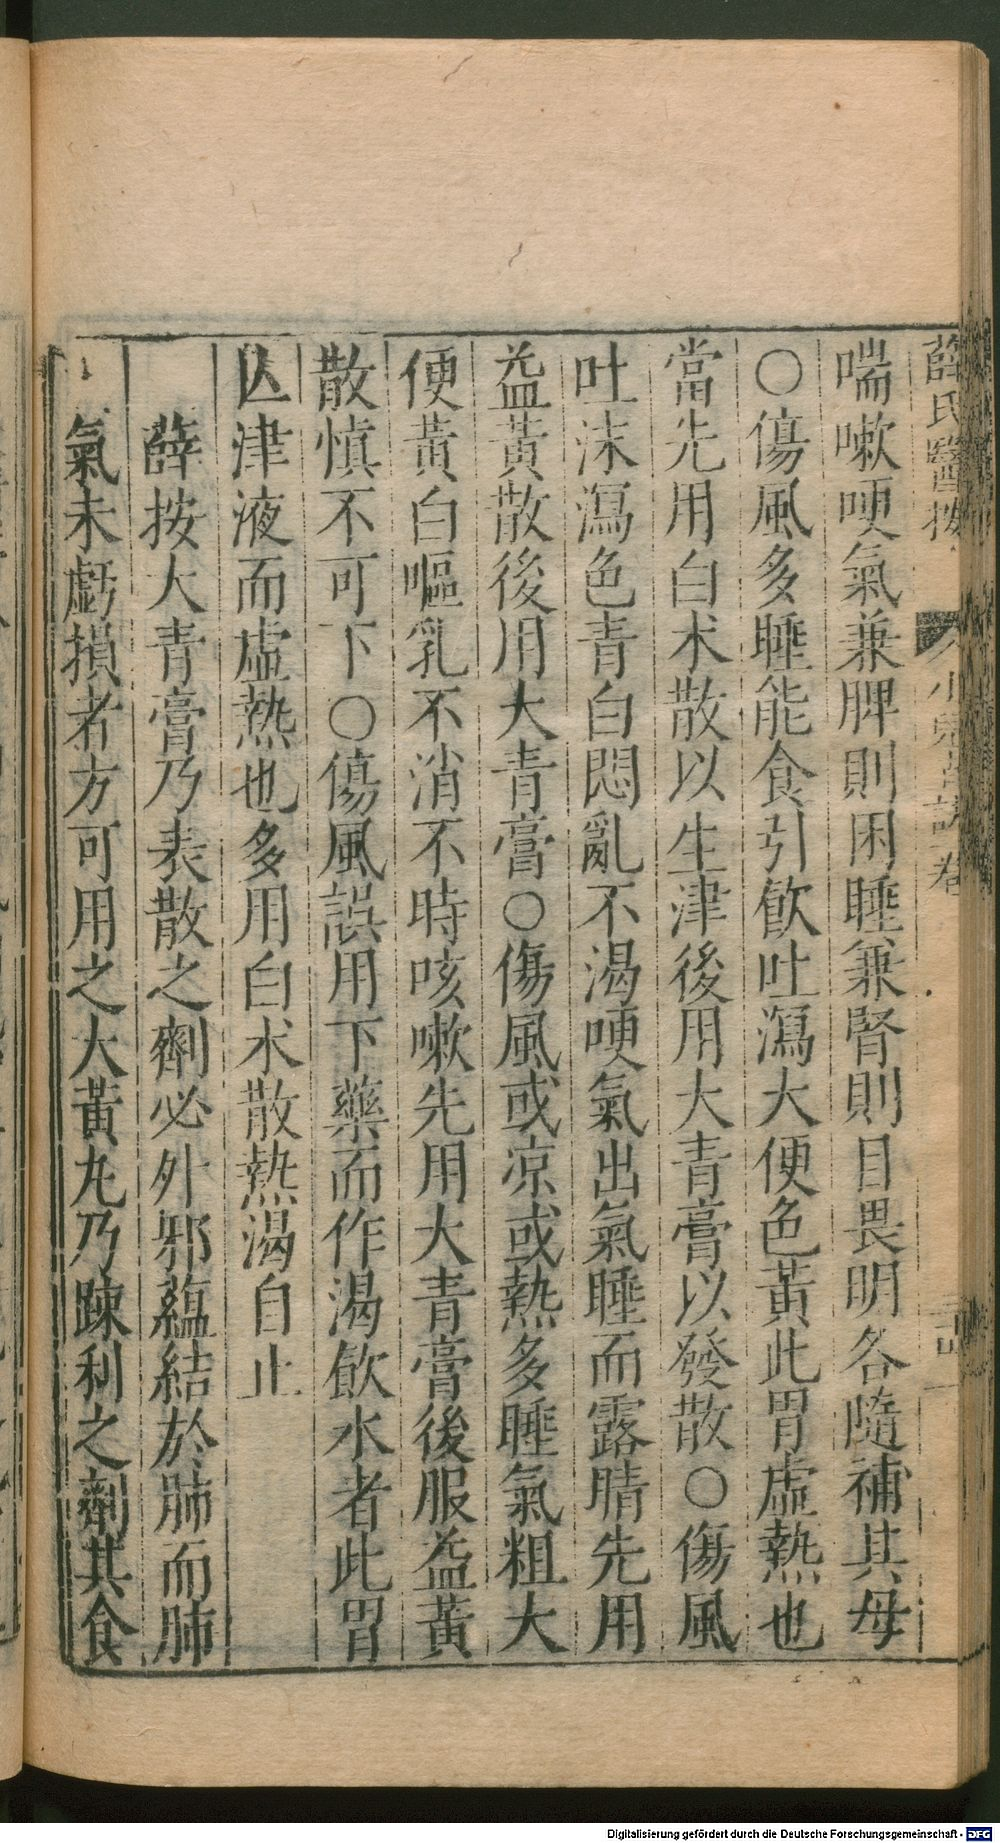 薛氏醫按 小兒 卷
喘嗽哽氣兼脾則困睡兼腎則目畏明各隨補其母
○傷風多睡能食引飲吐瀉大便色黃此胃虛熱也
當先用白术散以生津後用大青膏以發散○傷風
吐沫瀉色青白悶亂不渴哽氣出氣睡而露睛先用
益黃散後用大青膏○傷風或凉或熱多睡氣粗大
便黃白嘔乳不消不時咳嗽先用大青膏後服益黃
散慎不可下○傷風誤用下藥而作渴飲水者此胃
亾津液而虛熱也多用白术散熱渴自止
薛按大青膏乃表散之劑必外邪蘊結於肺而肺
氣未虧損者方可用之大黃丸乃踈利之劑其食
Digitalisierung gefördert durch die Deutsche Forschungsgemeinschaft - DFG